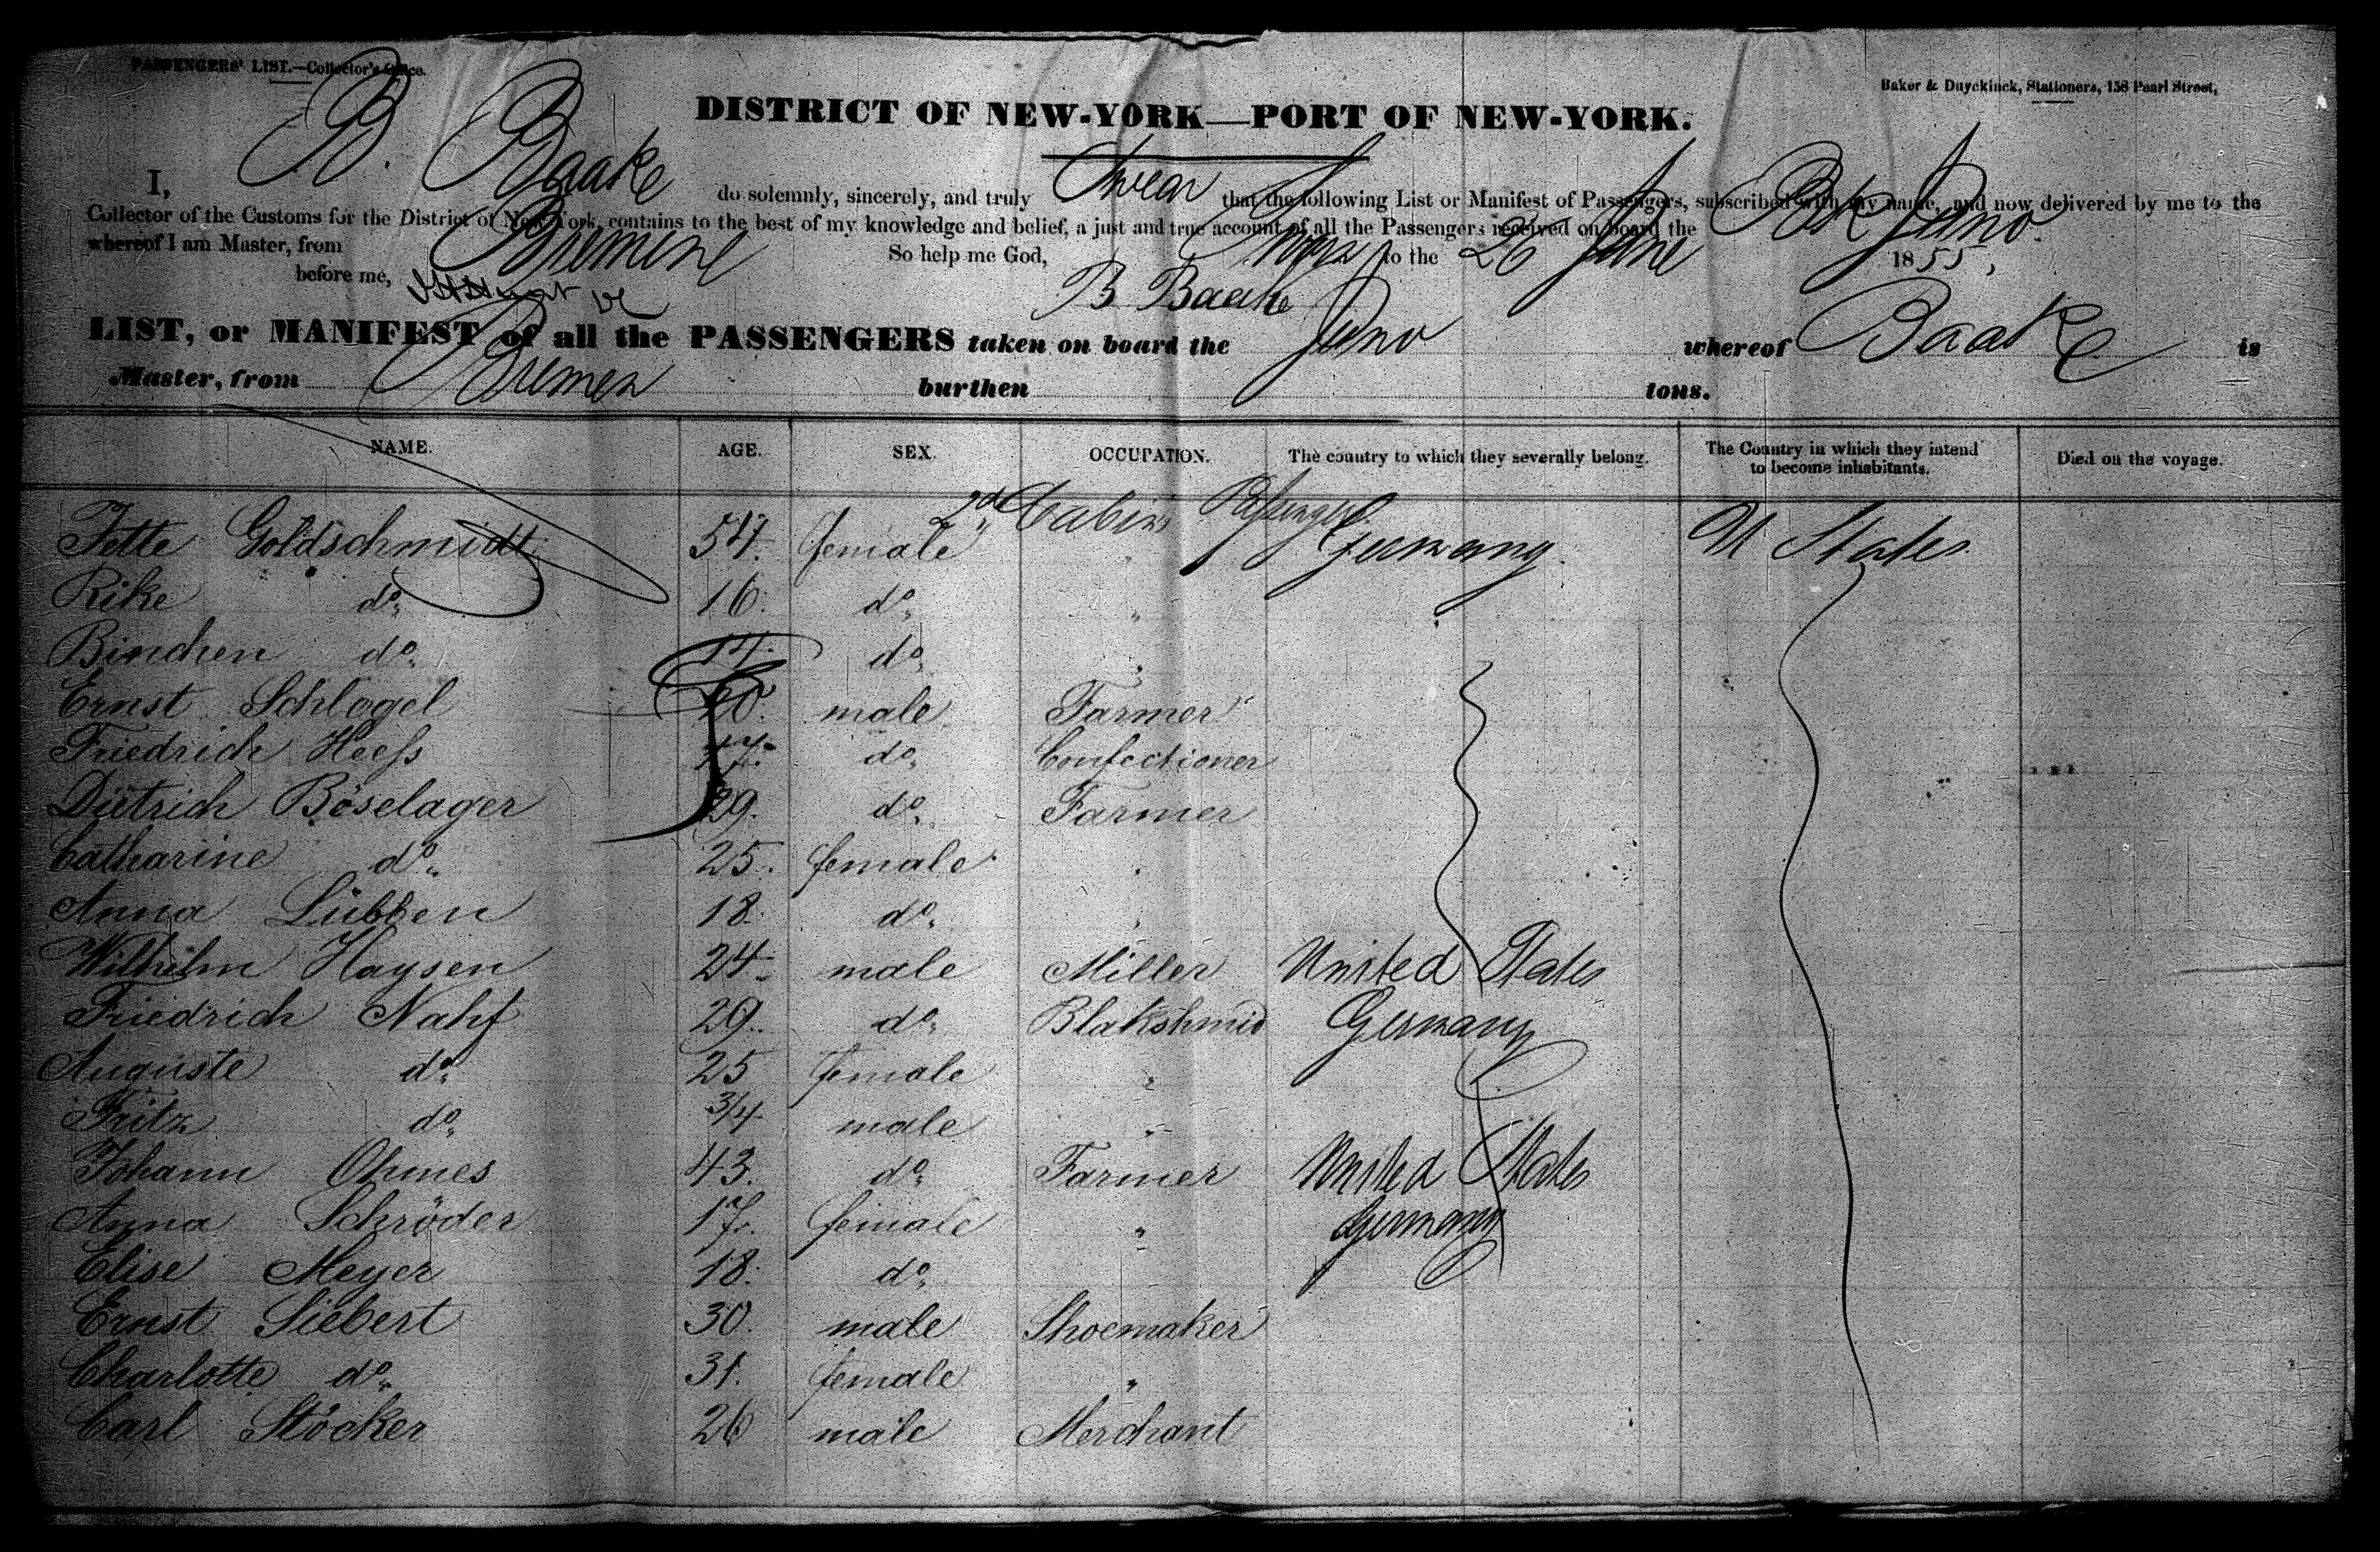 PASSENGERS' LIST.—Collector's Office.
Baker & Duyckinck, Stationers, 158 Pearl Street,
DISTRICT OF NEW-YORK—PORT OF NEW-YORK.
I, B. Baake do solemnly, sincerely, and truly Swear that the following List or Manifest of Passengers, subscribed with my name, and now delivered by me to the
Collector of the Customs for the District of New York, contains to the best of my knowledge and belief, a just and true account of all the Passengers received on board the Bk Juno
whereof I am Master, from Bremen
So help me God,
to the 26 June 1855,
before me,
B Baake
LIST, or MANIFEST of all the PASSENGERS taken on board the Juno whereof Baake is
Master, from Bremen burthen tons.
NAME. AGE. SEX. OCCUPATION. The country to which they severally belong. The Country in which they intend to become inhabitants. Died on the voyage.
2d Cabin Passengers
Jette Goldschmidt 54. female " Germany U States
Rike do 16. do "
Binchen do 14. do "
Ernst Schlogel 20. male Farmer
Friedrich Heeſs do Confectioner
Dietrich Böselager 29. do Farmer
Catharine do 25. female "
Anna Lübben 18. do "
Wilhelm Haysen 24. male Miller United States
Friedrich Nahf 29. do Blakshmid Germany
Auguste do 25 female "
Fritz do 3/4. male "
Johann Ohmes 43. do Farmer United States
Anna Schröder 17. female " Germany
Elise Meyer 18. do
Ernst Siebert 30. male Shoemaker
Charlotte do 31. female "
Carl Stöcker 26 male Merchant